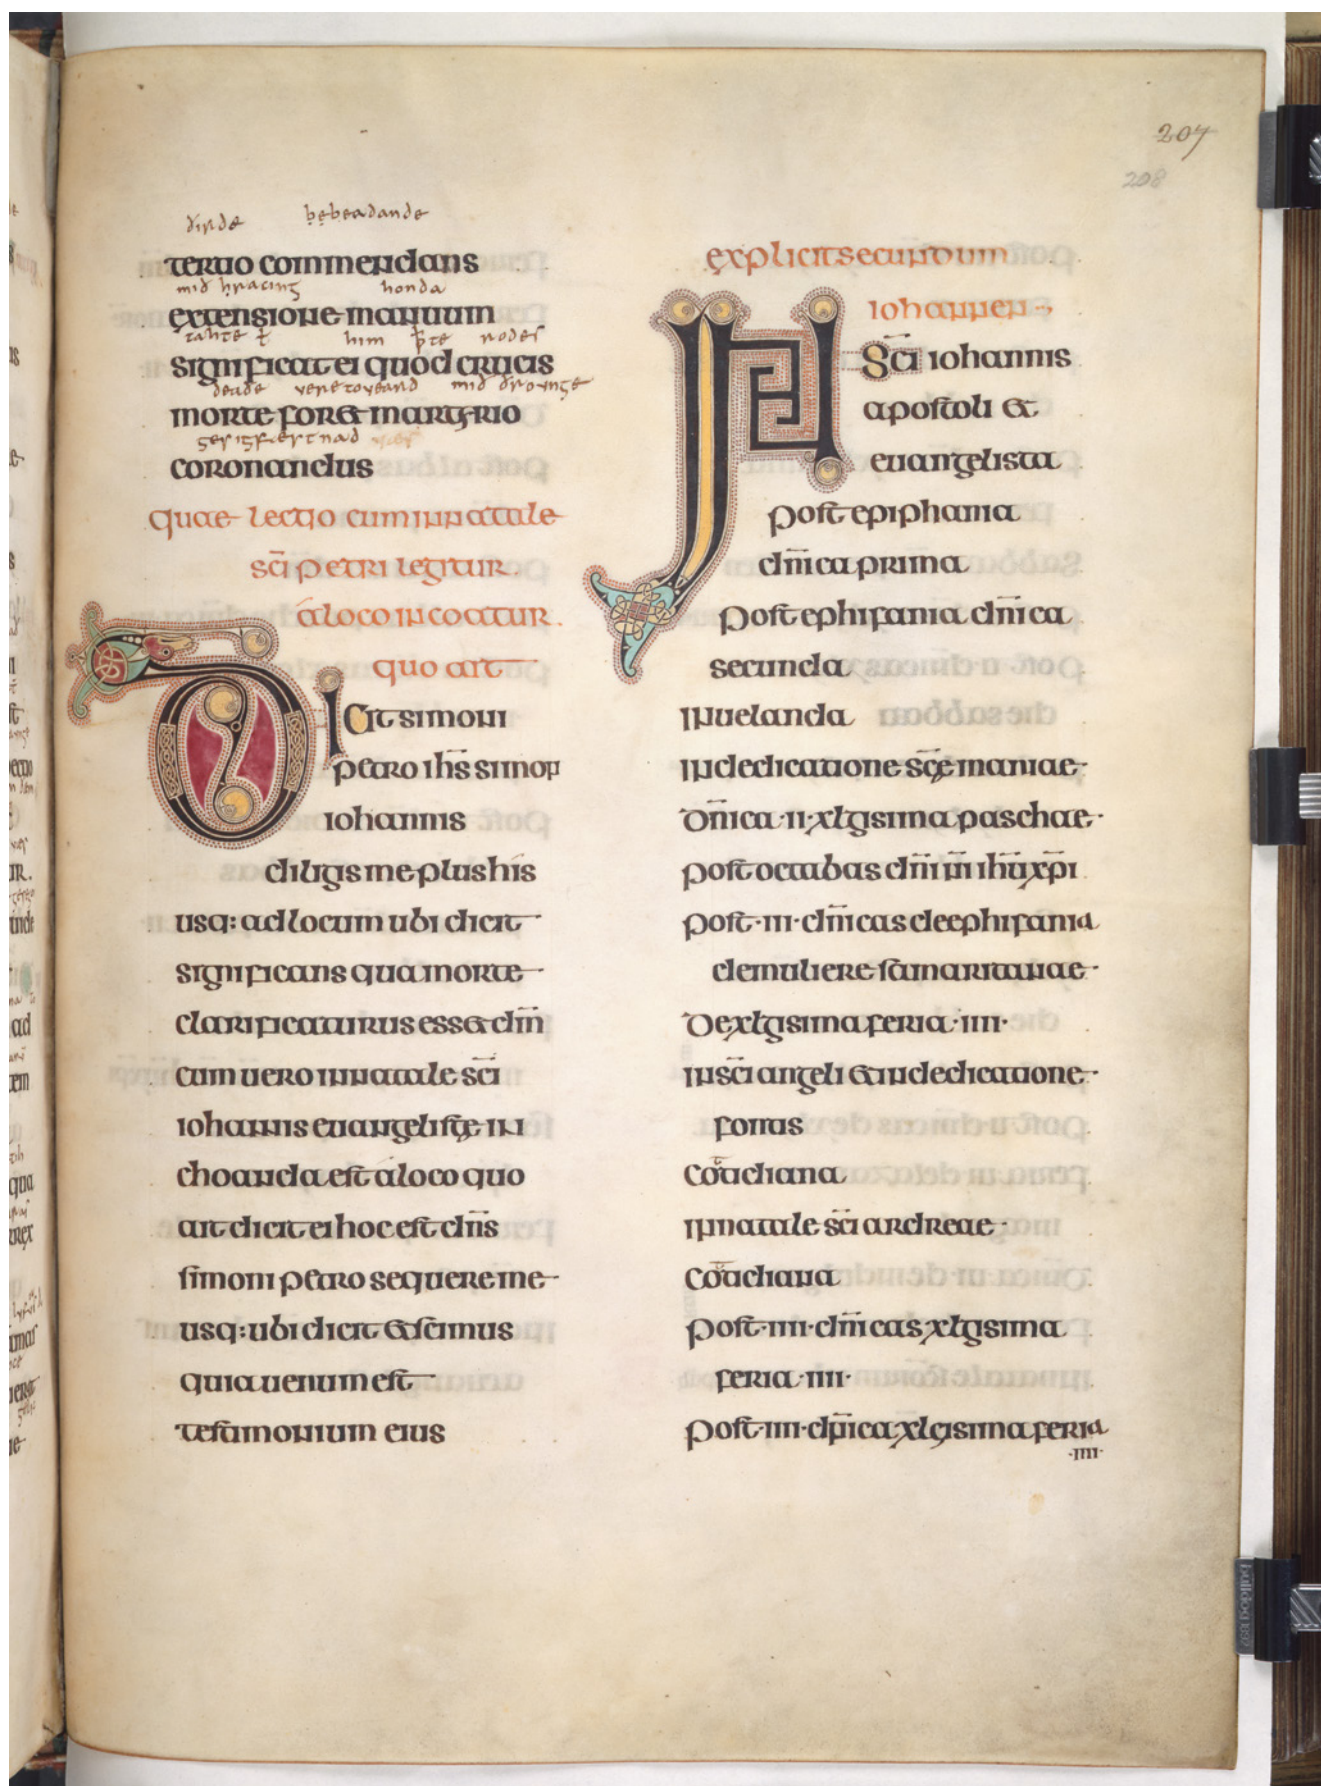 207
208
ðirde bebeadande
tertio commendans
mið hracing honda
extensione manuum
him rodes
significat ei quod crucis
deaðe
morte foret martyrio
coronandus
quae lectio cum in natale
sc̄i petri legitur.
á loco incoatur.
quo ait
Dicit simoni
petro ih̄s simon
iohannis
diligis me plus his
usq: ad locum ubi dicit
significans qua morte
clarificaturus esset dm̄
cum uero in natale sc̄i
iohannis euangelistę in
choanda est á loco quo
ait dicit ei hoc est dn̄s
simoni petro sequere me
usq: ubi dicit et scimus
quia uerum est
testimonium eius
explicit secundum
iohannen
IN Sc̄i iohannis
apostoli et
euangelista
post epiphania
dn̄ica prima
post ephifania dn̄ica
secunda
in uelanda
in dedicatione sc̄ę mariae
Dn̄ica ·ii· xlgisima paschae·
post octabas dn̄i n̄i ih̄u xp̄i
post ·iii· dn̄icas de ephifania
de muliere samaritanae·
De xlgisima feria ·iiii·
in sc̄i angeli et in dedicatione·
fontis
Cotidiana
in natale sc̄i andreae·
Cotidiana
post ·iiii· dn̄icas xlgisima
feria ·iiii·
post ·iiii· dn̄ica xlgisima feria
·iiii·
bulldog